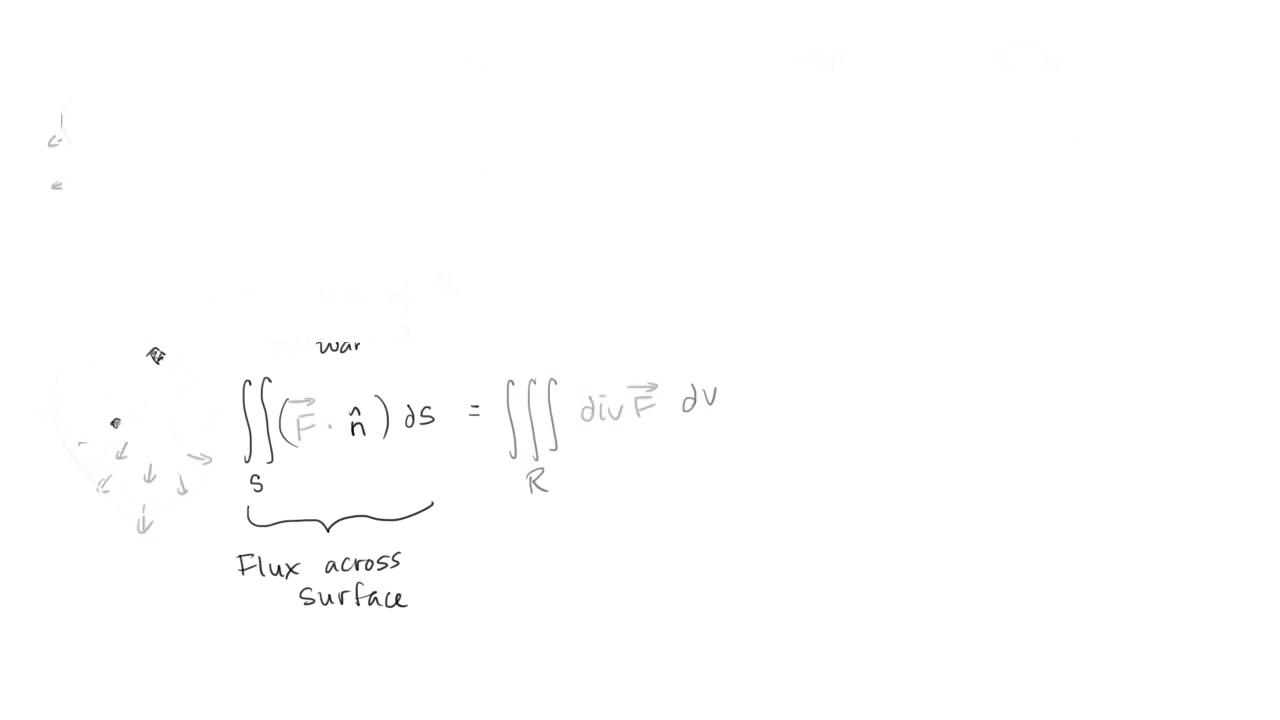 war
∬_S (F⃗ · n̂) ds = ∭_R div F⃗ dv
Flux across
surface